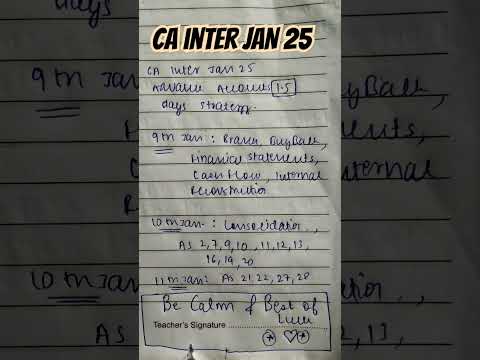 CA INTER JAN 25
days
CA Inter Jan 25
Advance Accounts 1.5
days strategy.
9th Jan : Branch, Buy Back,
Financial Statements,
Cash Flow, Internal
Reconstruction
10th Jan : Consolidation,
AS 2,7,9,10, 11,12,13,
16,19,20
11th Jan: AS 21,22,27,28
Be Calm & Best of
Luck
Teacher's Signature